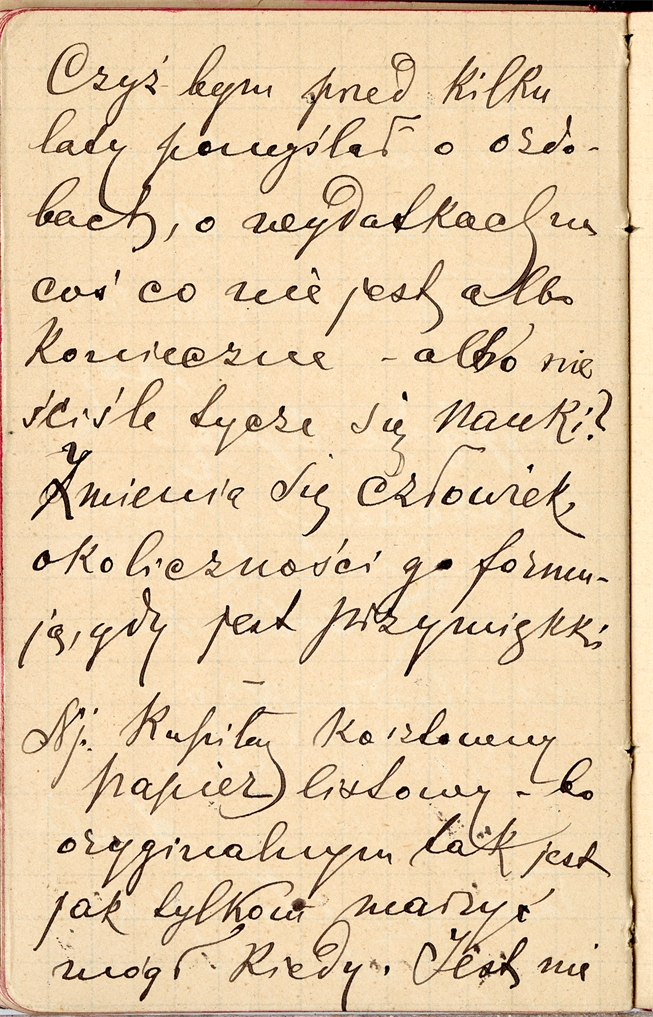 Czyż bym przed kilku
laty pomyślał o ozdo-
bach, o wydatkach na
coś co nie jest albo
konieczne - albo nie
ściśle tycze się nauki?
Zmienia się człowiek,
okoliczności go formu-
ją, gdy jest przymiękki
Nj. Kupiłem kosztowny
papier listowy - bo
oryginalnym tak jest
jak tylkom marzyć
mógł kiedy. Jest nie